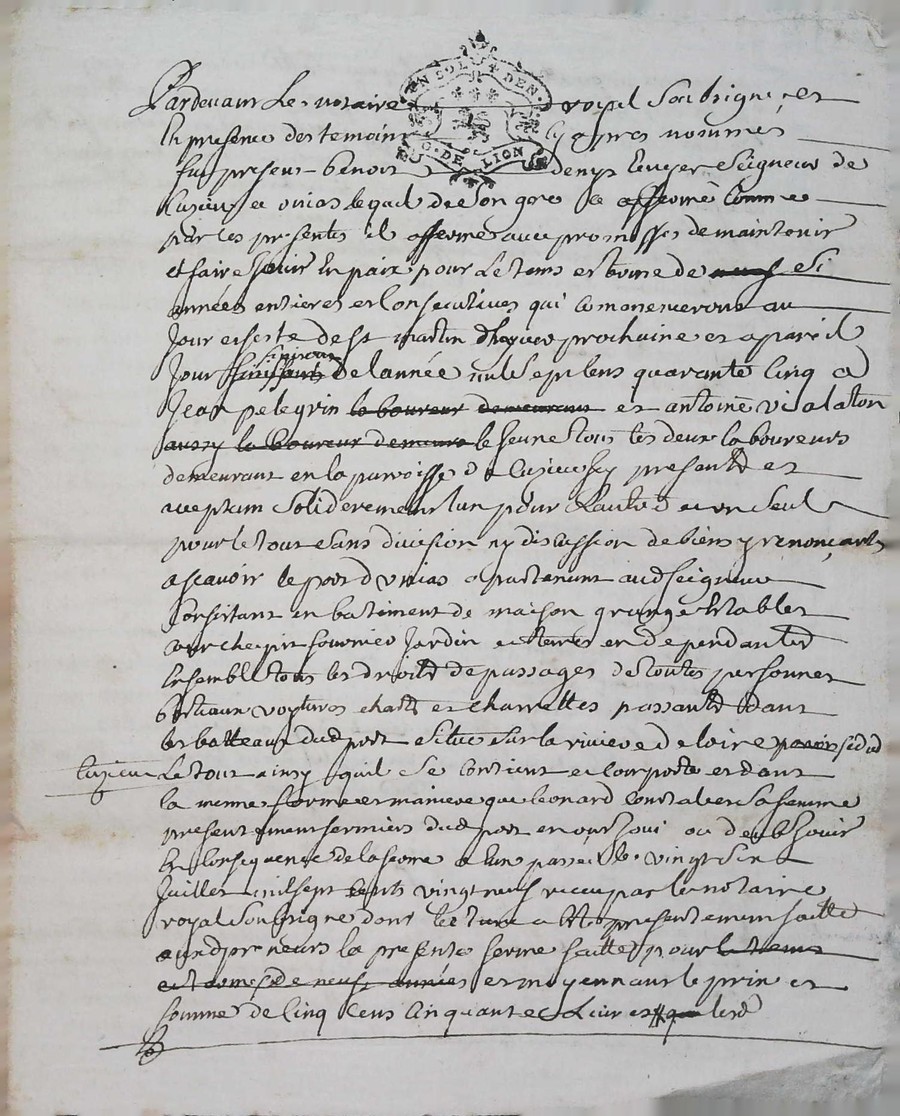 Pardevant Le notaire royal Soubsigné, et
En presence des temoins cy apres nommés
fut present benoit denys Ecuyer Seigneur de
Cuzieu et unias lequel de son gré a affermé Comme
par les presentes il afferme avec promesses de maintenir
et faire Jouir En paix pour Le tems et terme de neuf Si
années entieres et Consecutives qui Commenceront au
Jour et feste de St martin dhyver prochaine et a pareil
Jour finissant finiront De lannée mil Sept Cens quarante Cinq a
Jean pelegrin laboureur demeurant et antoine vialaton
aussy laboureur demeurant le Jeune tous les deux laboureurs
demeurant en la parroisse de Cuzieu Icy presents et
acceptant Solidairement lun pour Lautre et un Seul
pour le tout Sans division ny discussion de biens y renonçants
a scavoir le port d'unias apartenant aud Seigneur
Consistant en batiment de maison grange Etables
Jardin et terres en dependantes
Ensemble tous les droits de passages de toutes personnes
bestiaux voytures chards et Charrettes passants dans
les batteaux dud port Situé Sur la riviere de loire paroisse dud
Cuzieu Le tout ainsy quil Se Contient et Comporte et dans
la meme forme et maniere que leonard et Sa femme
presentement fermiers dud port en ont Joui ou deub Jouir
En Consequence de la ferme a Eux passée le vingt Six
Juillet mil Sept Cents vingt neuf receu par le notaire
royal Soubsigné dont lecture a Eté presentement faitte
auxd preneurs la presente ferme faitte pour le tems
et terme de neuf années et moyennant le prix et
Somme de Cinq Cens Cinquante Livres que lesd
EN SOL DEN
G. DE LION